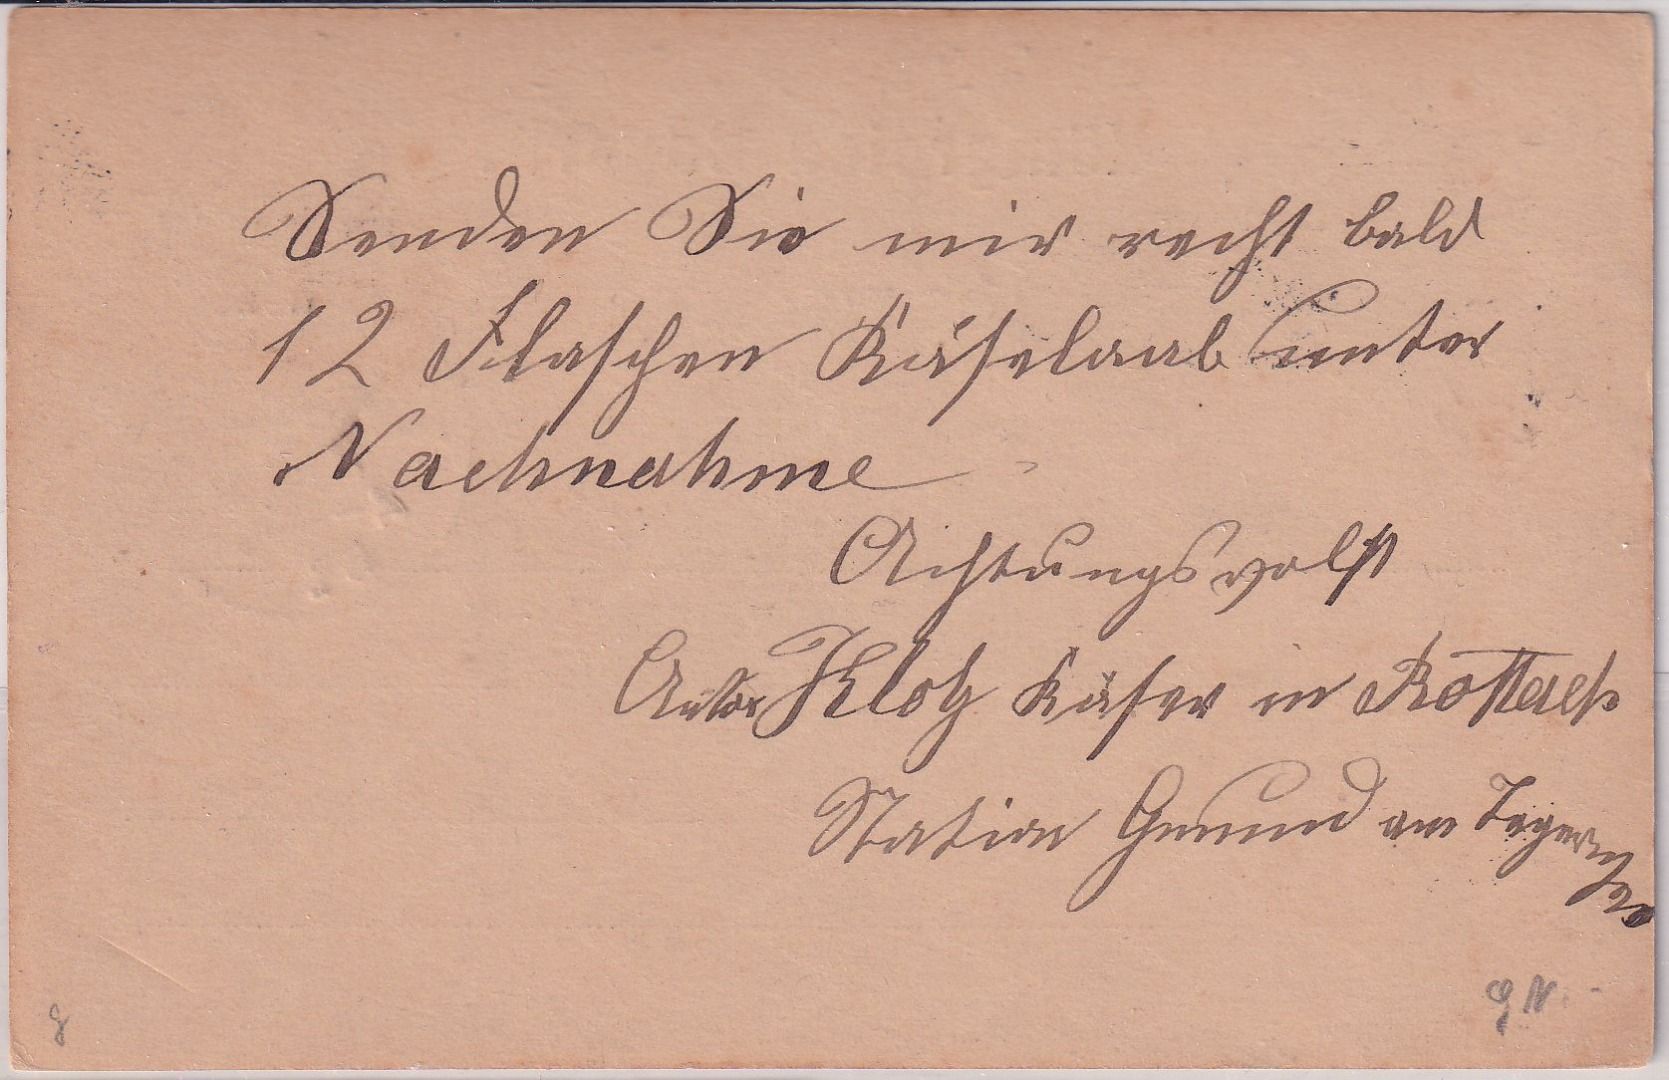 Senden Sie mir recht bald
12 Flaschen Käselaab unter
Nachnahme
Achtungsvolst
Anton Klotz Käser in Rottach
Station Gmund am Tegernsee